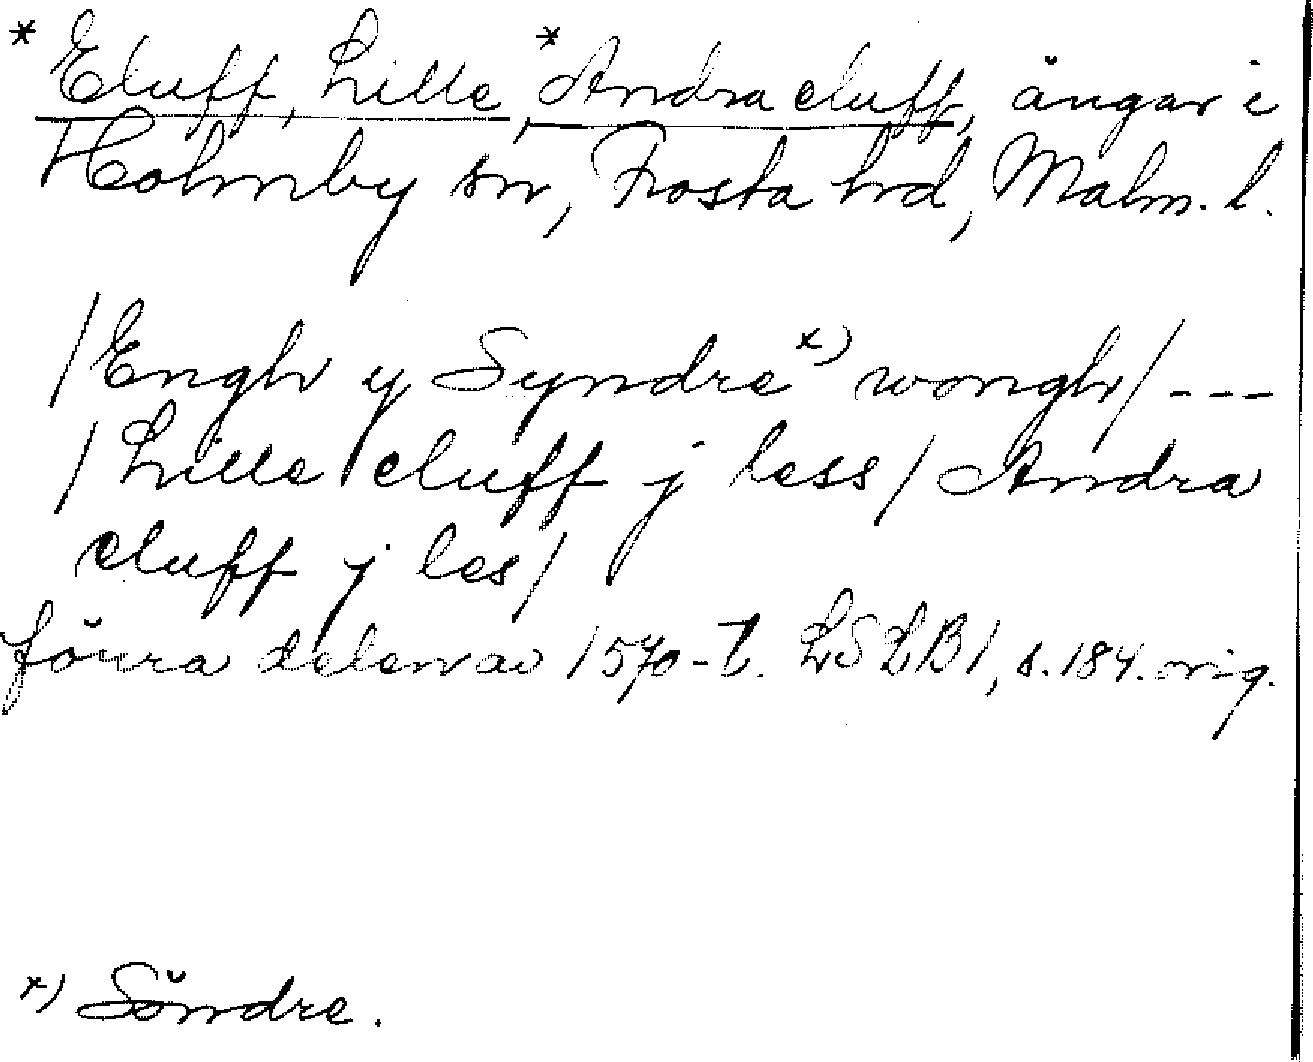 * Eluff, Lille, * Andra eluff, ängar i
Holmby sn, Frosta hrd, Malm. l.
/Engh y Syndre x) wongh/ ---
/Lille eluff j less/ Andra
eluff j les/
förra delen av 1570-t. LSLB1, s. 184. orig.
x) Söndre.